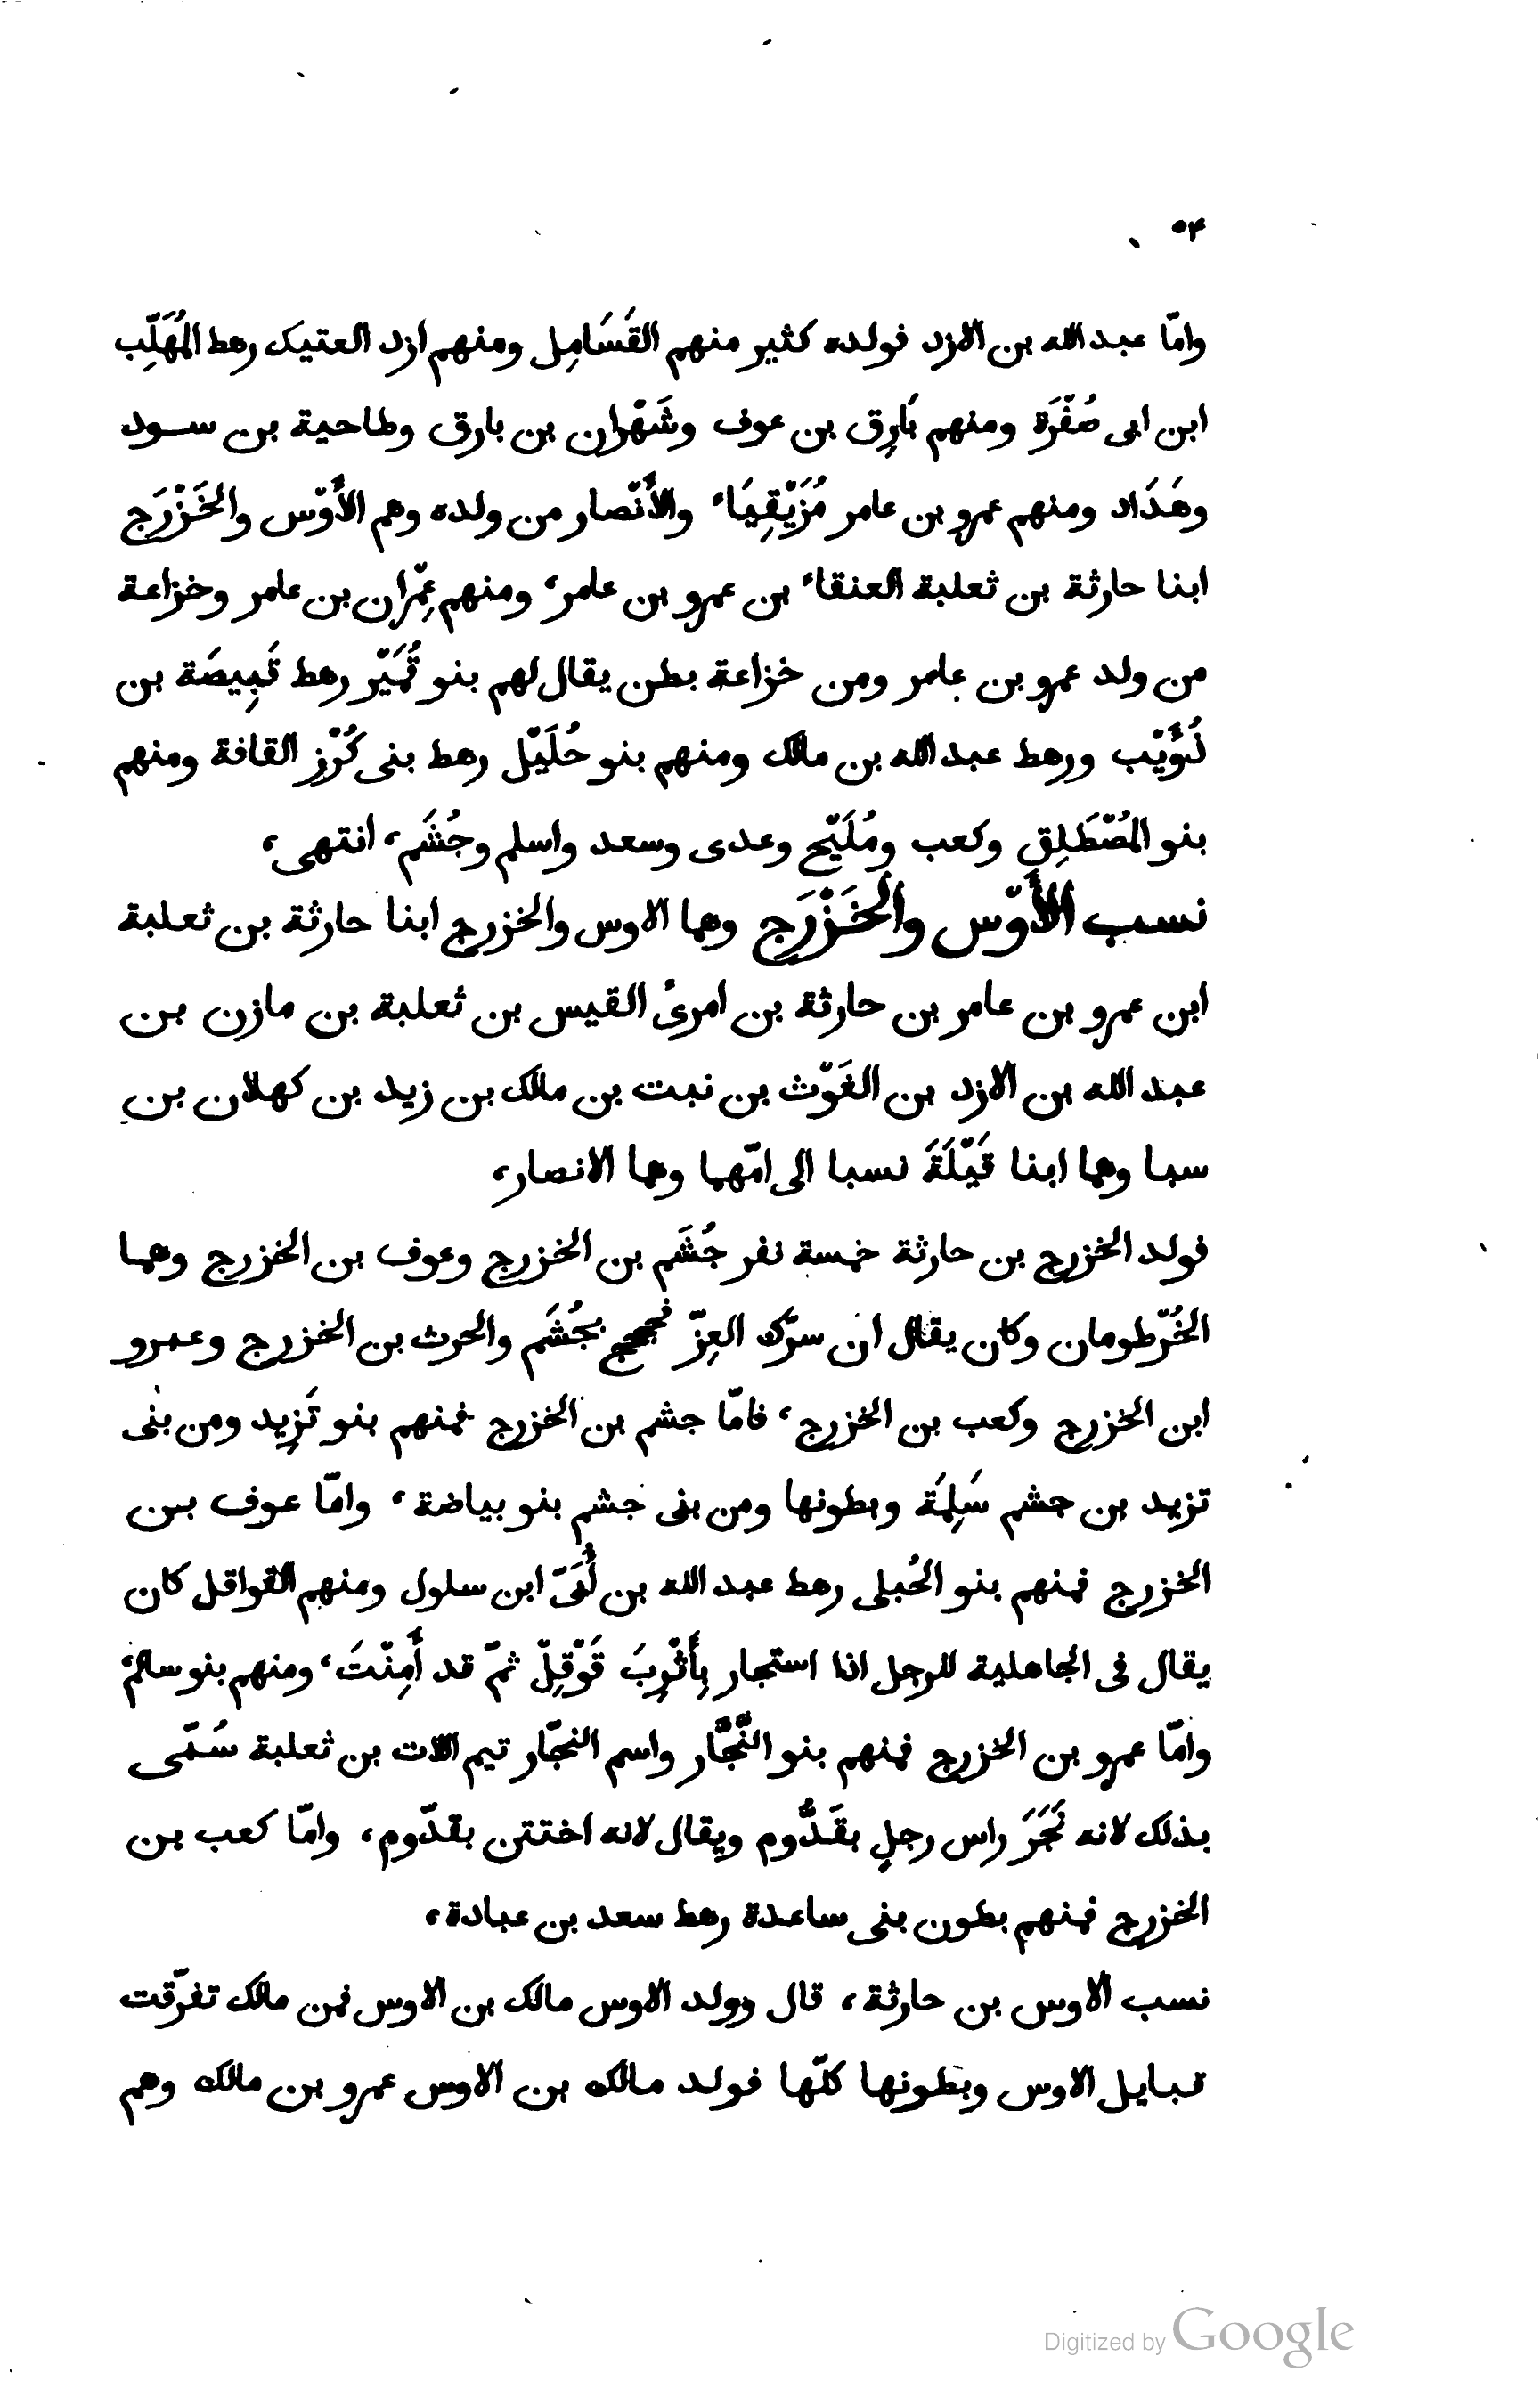 ٥٢
وامّا عبد الله بن الازد فولده كثير منهم القَسَامِل ومنهم ازد العتيك رهط المُهَلّب
ابن ابى صُفْرَة ومنهم بَارِق بن عوف وشَهْران بن بارق وطاحية بن سود
وهَدَاد ومنهم عمرو بن عامر مُزَيْقِيَاء والأَنْصار من ولده وهم الأَوْس والخَزْرَج
ابنا حارثة بن ثعلبة العنقاء بن عمرو بن عامر، ومنهم عِمْران بن عامر وخزاعة
من ولد عمرو بن عامر ومن خزاعة بطن يقال لهم بنو قُمَيْر رهط قَبِيصَة بن
ذُوَّيْب ورهط عبد الله بن مالك ومنهم بنو حُلَيْل رهط بنى كُرْز القافة ومنهم
بنو المُصْطَلِق وكعب ومُلَيْح وعدى وسعد واسلم وجُشَم، انتهى،
نسب الأَوْس والخَزْرَج وهما الاوس والخزرج ابنا حارثة بن ثعلبة
ابن عمرو بن عامر بن حارثة بن امرئ القيس بن ثعلبة بن مازن بن
عبد الله بن الازد بن الغَوْث بن نبت بن مالك بن زيد بن كهلان بن
سبا وهما ابنا قَيْلَةَ نسبا الى امّهما وهما الانصار،
فولد الخزرج بن حارثة خمسة نفر جُشَم بن الخزرج وعوف بن الخزرج وهما
الخُرْطومان وكان يقال ان سرّك العِزّ فجحجح بجُشَم والحرث بن الخزرج وعمرو
ابن الخزرج وكعب بن الخزرج، فامّا جشم بن الخزرج فمنهم بنو تَزِيد ومن بنى
تزيد بن جشم سَلِمَة وبطونها ومن بنى جشم بنو بياضة، وامّا عوف بن
الخزرج فمنهم بنو الحُبلى رهط عبد الله بن أُبَىّ ابن سلول ومنهم القواقل كان
يقال فى الجاهلية للرجل اذا استجار بِأَثْرِبَ قَوْقِلْ ثمّ قد أَمِنْتَ، ومنهم بنو سالم،
وامّا عمرو بن الخزرج فمنهم بنو النَّجَّار واسم النجّار تيم اللات بن ثعلبة سُمّى
بذلك لانه نَجَرَ راس رجلٍ بقَدُّوم ويقال لانه اختتن بقدّوم، وامّا كعب بن
الخزرج فمنهم بطون بنى ساعدة رهط سعد بن عبادة،
نسب الاوس بن حارثة، قال وولد الاوس مالك بن الاوس فمن مالك تفرّقت
قبايل الاوس وبطونها كلّها فولد مالك بن الاوس عمرو بن مالك وهم
Digitized by Google